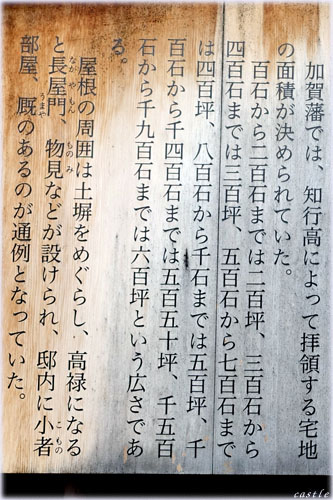 加賀藩では、知行高によって拝領する宅地
の面積が決められていた。
百石から二百石までは二百坪、三百石から
四百石までは三百坪、五百石から七百石まで
は四百坪、八百石から千石までは五百坪、千
百石から千四百石までは五百五十坪、千五百
石から千九百石までは六百坪という広さであ
る。
屋根の周囲は土塀をめぐらし、高禄になる
と長屋門、物見などが設けられ、邸内に小者
部屋、厩のあるのが通例となっていた。
castle